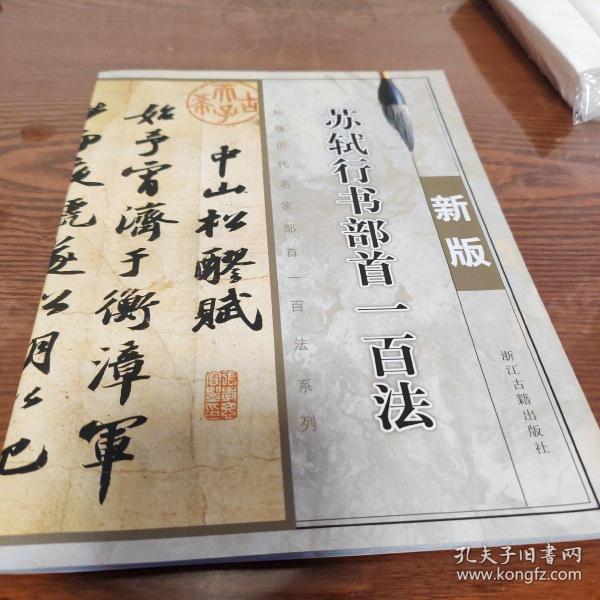 新版
苏轼行书部首一百法
浙江古籍出版社
新版历代名家部首一百法系列
中山松醪賦
始予宵濟于衡漳軍
孔夫子旧书网
www.kongfz.com